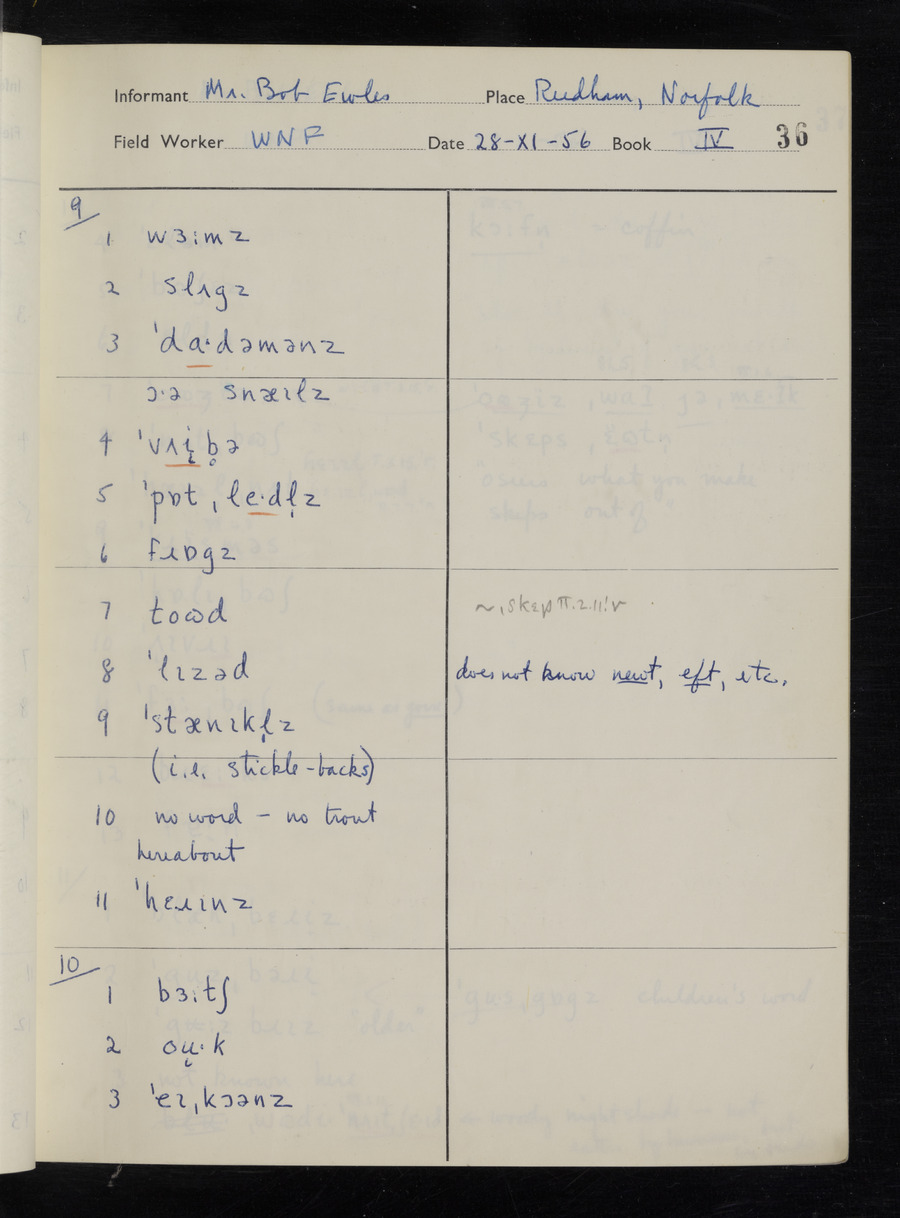 Informant Mr. Bob Ewles Place Reedham, Norfolk
Field Worker WNF Date 28-XI-56 Book IV 36
9
1 wɜːmz
2 slʌgz
3 ˈdɑ·dəmənz
ɔ·ə snæɪłz
4 ˈvʌɪ̨b̥ə
5 ˈpɒt ˌłe·dł̩z
6 fɹɒgz
7 toɷd ~ˌskɛp II.2.11!r
8 ˈlɪzəd does not know newt, eft, etc.
9 ˈstænɪkł̩z
(i.e. stickle-backs)
10 no word - no trout
hereabout
11 ˈhɛɹɪnz
10
1 bɜːtʃ
2 oṳ·k
3 ˈeɪˌkɔənz